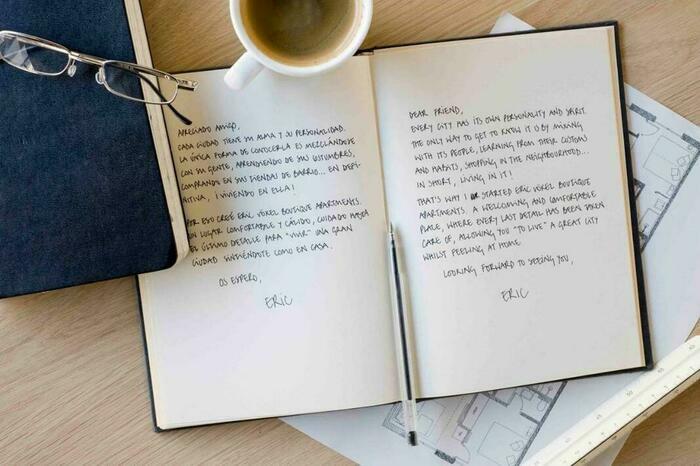 APRECIADO AMIGO,
CADA CIUDAD TIENE SU ALMA Y SU PERSONALIDAD.
LA ÚNICA FORMA DE CONOCERLA ES MEZCLÁNDOSE
CON SU GENTE, APRENDIENDO DE SUS COSTUMBRES,
COMPRANDO EN SUS TIENDAS DE BARRIO... EN DEFI-
NITIVA, ¡VIVIENDO EN ELLA!
POR ESO CREÉ ERIC VÖKEL BOUTIQUE APARTMENTS.
UN LUGAR CONFORTABLE Y CÁLIDO, CUIDADO HASTA
EL ÚLTIMO DETALLE PARA "VIVIR" UNA GRAN
CIUDAD SINTIÉNDOTE COMO EN CASA.
OS ESPERO,
ERIC
DEAR FRIEND,
EVERY CITY HAS ITS OWN PERSONALITY AND SPIRIT.
THE ONLY WAY TO GET TO KNOW IT IS BY MIXING
WITH ITS PEOPLE, LEARNING FROM THEIR CUSTOMS
AND HABITS, SHOPPING IN THE NEIGHBOURHOOD...
IN SHORT, LIVING IN IT!
THAT'S WHY I STARTED ERIC VÖKEL BOUTIQUE
APARTMENTS. A WELCOMING AND COMFORTABLE
PLACE, WHERE EVERY LAST DETAIL HAS BEEN TAKEN
CARE OF, ALLOWING YOU "TO LIVE" A GREAT CITY
WHILST FEELING AT HOME
LOOKING FORWARD TO SEEING YOU,
ERIC